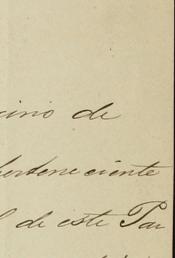 cino de
perteneciente
l de este Par